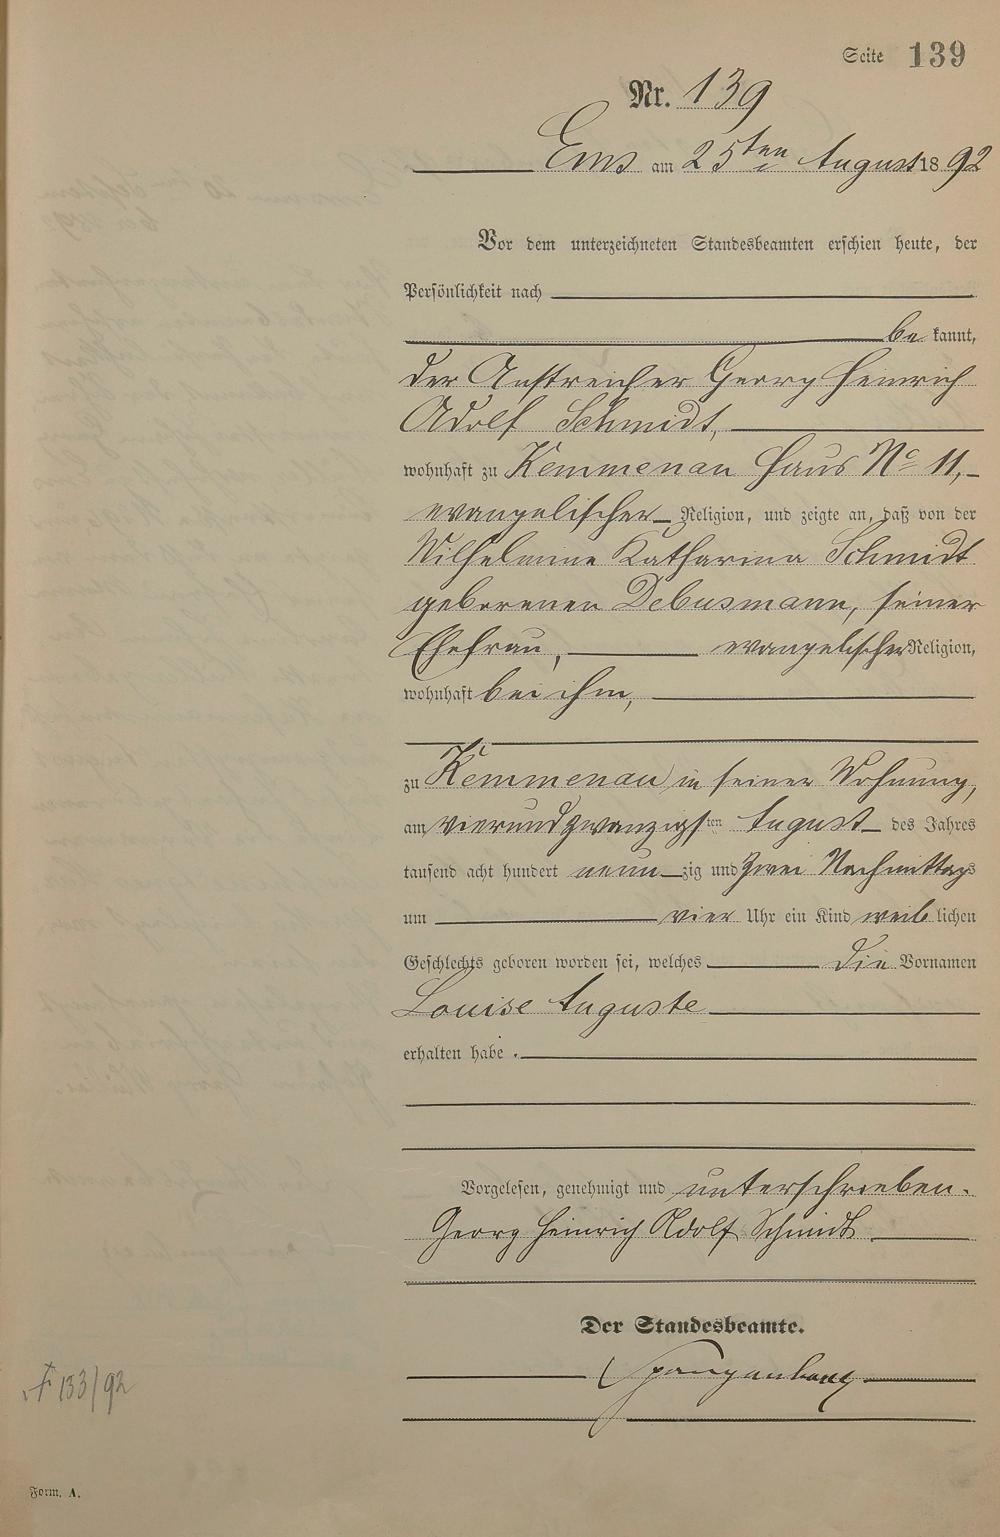 Seite 139
Nr. 139
Ems am 25ten August 1892
Vor dem unterzeichneten Standesbeamten erschien heute, der
Persönlichkeit nach
be kannt,
der Anstreicher Georg Heinrich
Adolf Schmidt,
wohnhaft zu Kemmenau Haus No 11,
evangelischer Religion, und zeigte an, daß von der
Wilhelmine Katharina Schmidt
geborenen Debusmann, seiner
Ehefrau, evangelischer Religion,
wohnhaft bei ihm,
zu Kemmenau in seiner Wohnung,
am vierundzwanzigsten August des Jahres
tausend acht hundert neun zig und zwei Nachmittags
um vier Uhr ein Kind weib lichen
Geschlechts geboren worden sei, welches die Vornamen
Louise Auguste
erhalten habe.
Vorgelesen, genehmigt und unterschrieben.
Georg Heinrich Adolf Schmidt
Der Standesbeamte.
Spangenberg
133/92
Form. A.